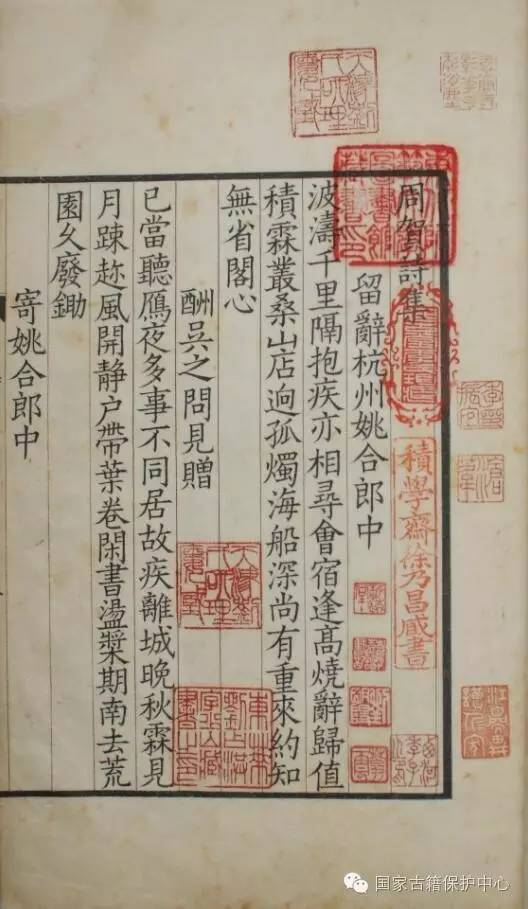 周賀詩集
留辭杭州姚合郎中
波濤千里隔抱疾亦相尋會宿逢高燒辭歸值
積霖叢桑山店逈孤燭海船深尚有重來約知
無省閣心
酬吳之問見贈
已當聽鴈夜多事不同居故疾離城晚秋霖見
月踈趂風開静户帶葉卷閑書盪槳期南去荒
園久廢鋤
寄姚合郎中
積學齋徐乃昌藏書
国家古籍保护中心